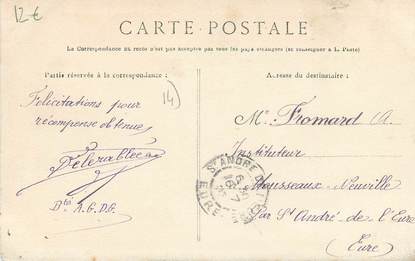 12€
CARTE POSTALE
La Correspondance au recto n'est pas acceptée par tous les pays étrangers (se renseigner à la Poste)
Partie réservée à la correspondance :
Adresse du destinataire :
14
Félicitations pour
récompense obtenue
Délérablée
Dté A.G.D.G.
Mr Fromard (A.
Instituteur
Housseaux-Neuville
Par St André-de l'Eure
(Eure)
ST ANDRE DE L'EURE
EURE